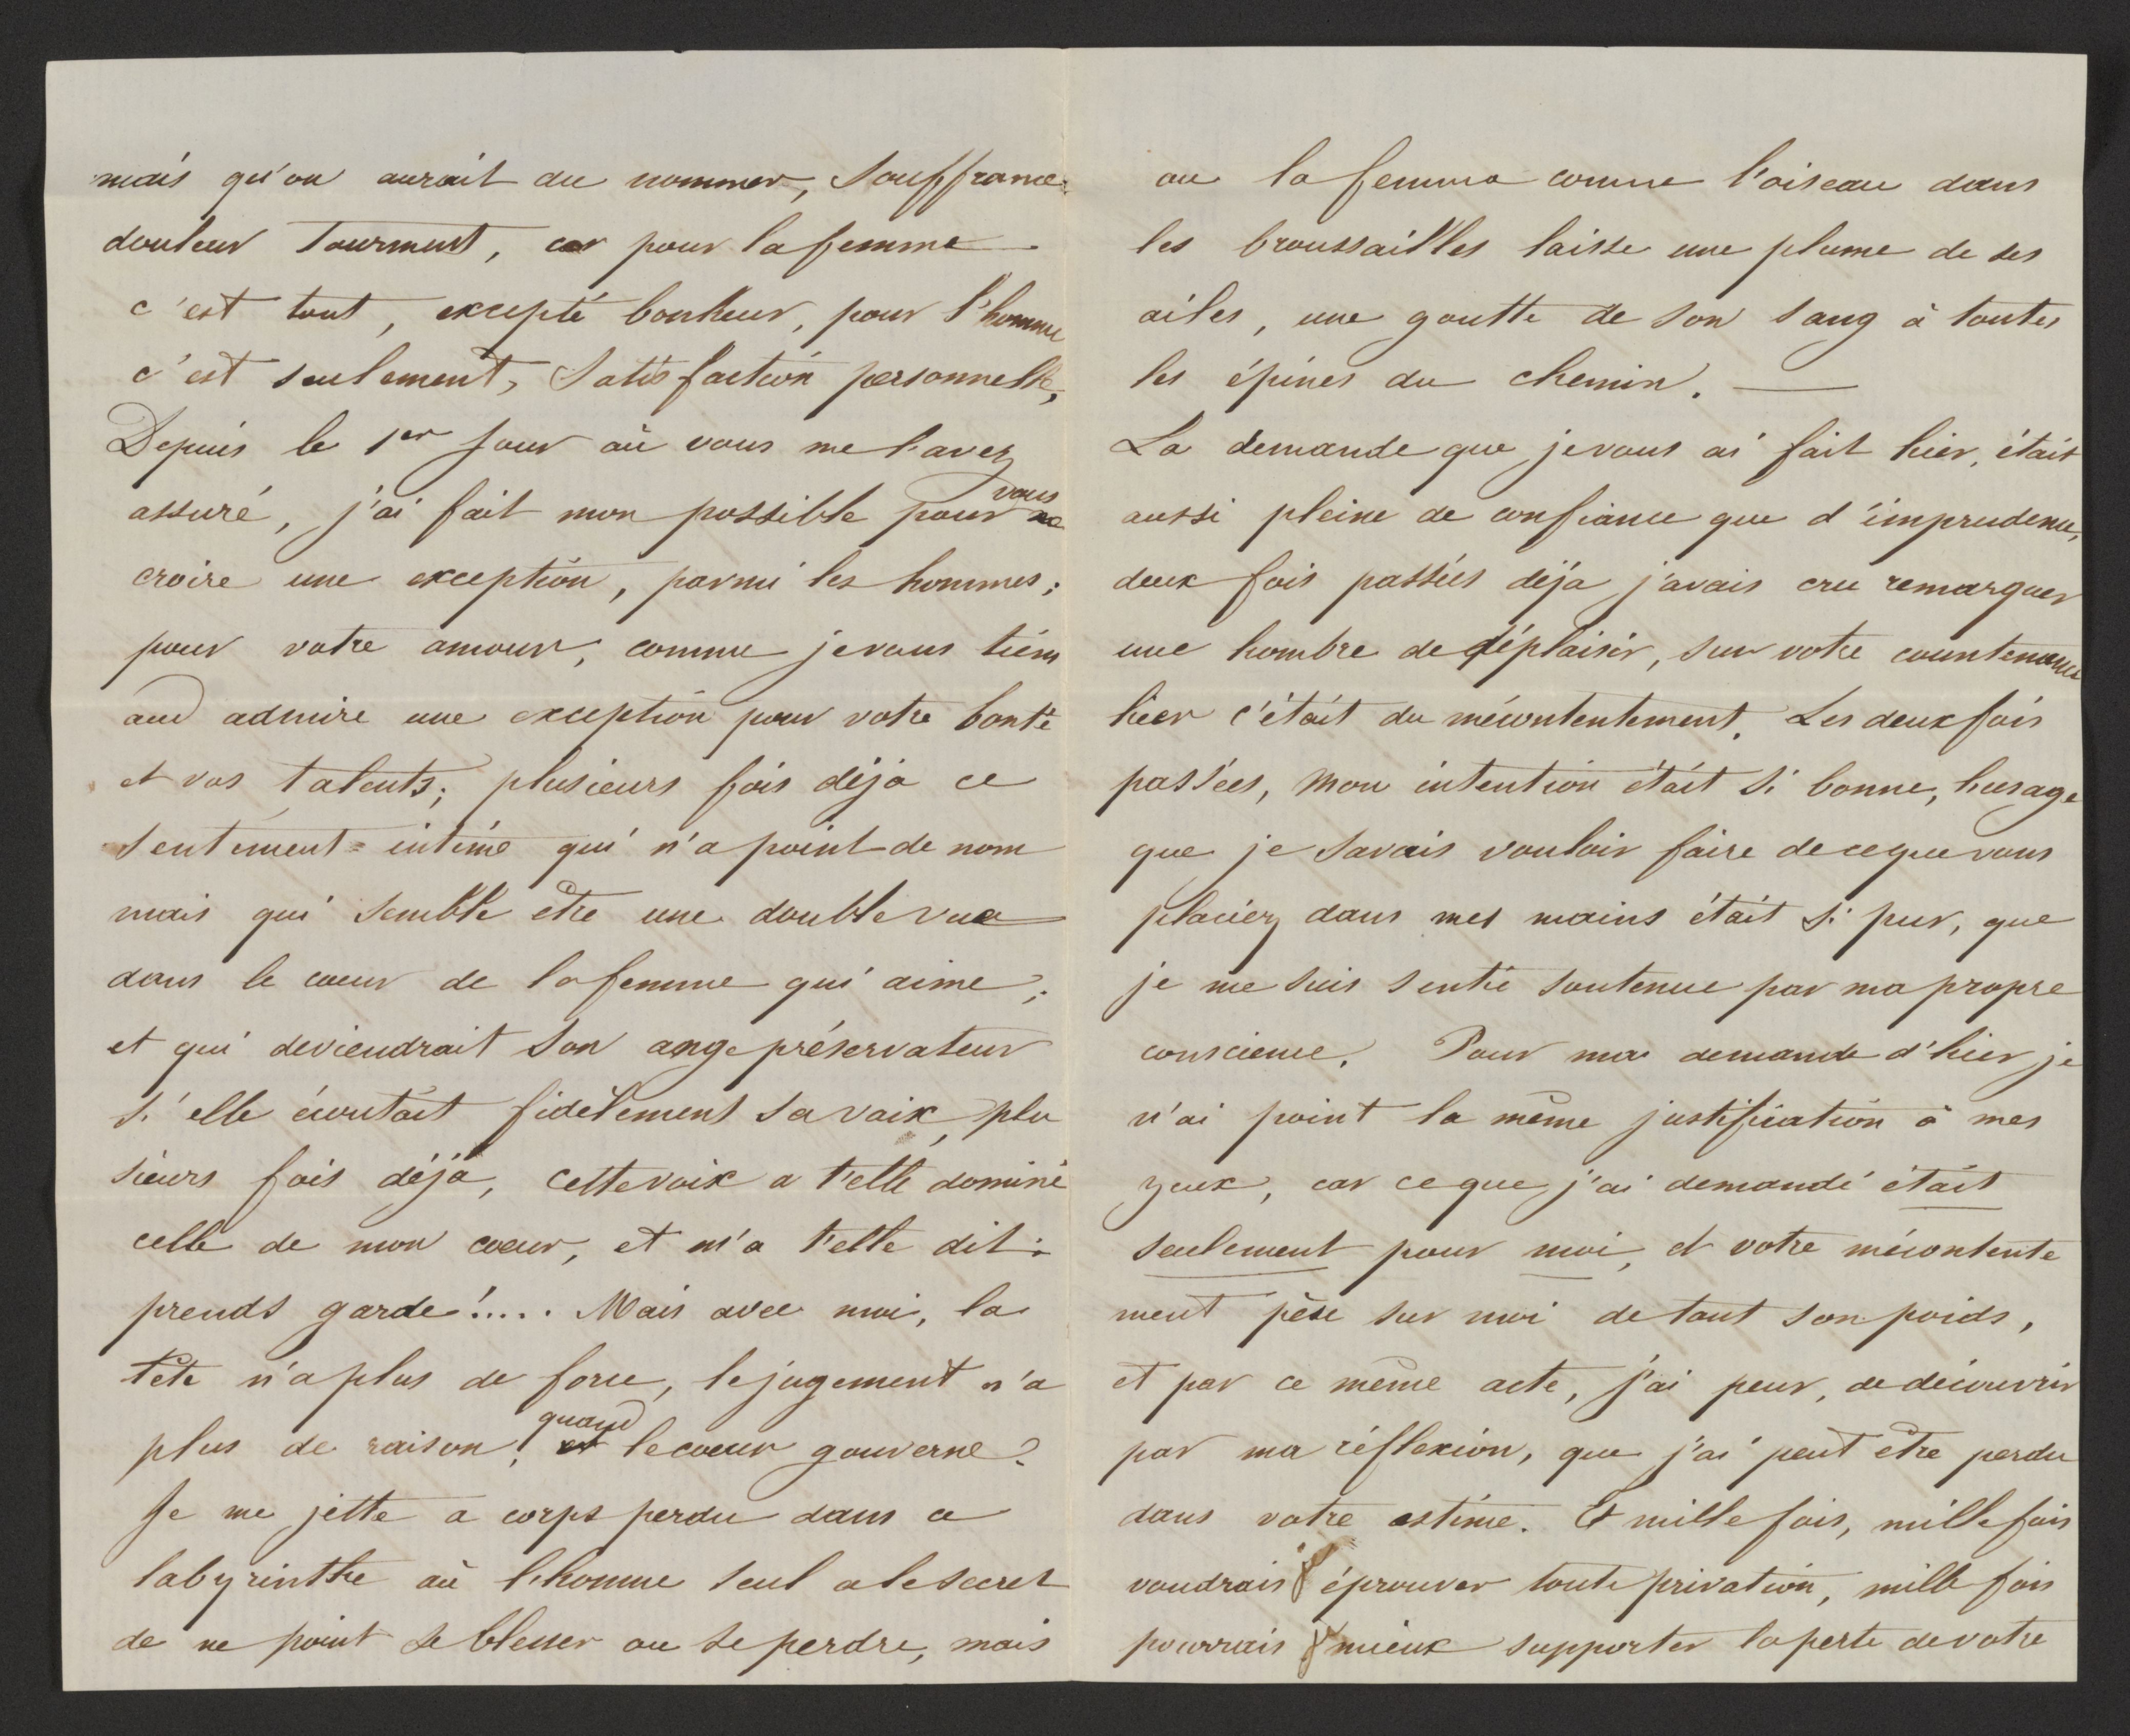 mais qu'on aurait du nommer, Souffrance
douleur Tourment, car pour la femme
c'est tout, excepté bonheur, pour l'homme
c'est seulement, Satisfaction personnelle,
Depuis le 1er Jour où vous me l'avez
assuré, j'ai fait mon possible pour vous
croire une exception, parmi les hommes;
pour votre amour, comme je vous tiens
and admire une exception pour votre bonté
et vos talents; plusieurs fois déja ce
sentiment intime qui n'a point de nom
mais qui semble etre une double vue
dans le coeur de la femme qui aime;
et qui deviendrait son ange préservateur
si elle écoutait fidèlement sa voix, plu
sieurs fois déja, cette voix a t'elle dominé
celle de mon coeur, et m'a t'elle dit:
prends garde!.... Mais avec moi, la
tête n'a plus de force, le jugement n'a
plus de raison, quand le coeur gouverne.
Je me jette a corps perdu dans ce
labyrinthe où l'homme seul a le secret
de ne point se blesser ou se perdre, mais
ou la femme comme l'oiseau dans
les broussailles laisse une plume de ses
ailes, une goutte de son sang à toutes
les épines du chemin. —
La demande que je vous ai fait hier, était
aussi pleine de confiance que d'imprudence,
deux fois passées déja j'avais cru remarquer
une hombre de déplaisir, sur votre countenance
hier c'était du mécontentement. Les deux fois
passées, mon intention était si bonne, l'usage
que je savais vouloir faire de ce que vous
placiez dans mes mains était si pur, que
je me suis sentie soutenue par ma propre
conscience. Pour ma demande d'hier je
n'ai point la même justification à mes
yeux, car ce que j'ai demandé était
seulement pour moi, et votre mécontente
ment pèse sur moi de tout son poids,
et par ce même acte, j'ai peur, de découvrir
par ma réflexion, que j'ai peut etre perdu
dans votre estime. Et mille fois, mille fois
voudrais je éprouver toute privation, mille fois
pourrais je mieux supporter la perte de votre